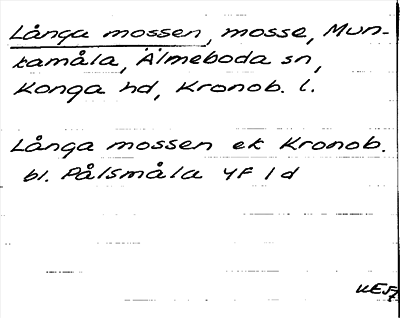 Långa mossen, mosse, Mun-
kamåla, Älmeboda sn,
Konga hd, Kronob. l.
Långa mossen ek Kronob.
bl. Pålsmåla 4F 1d